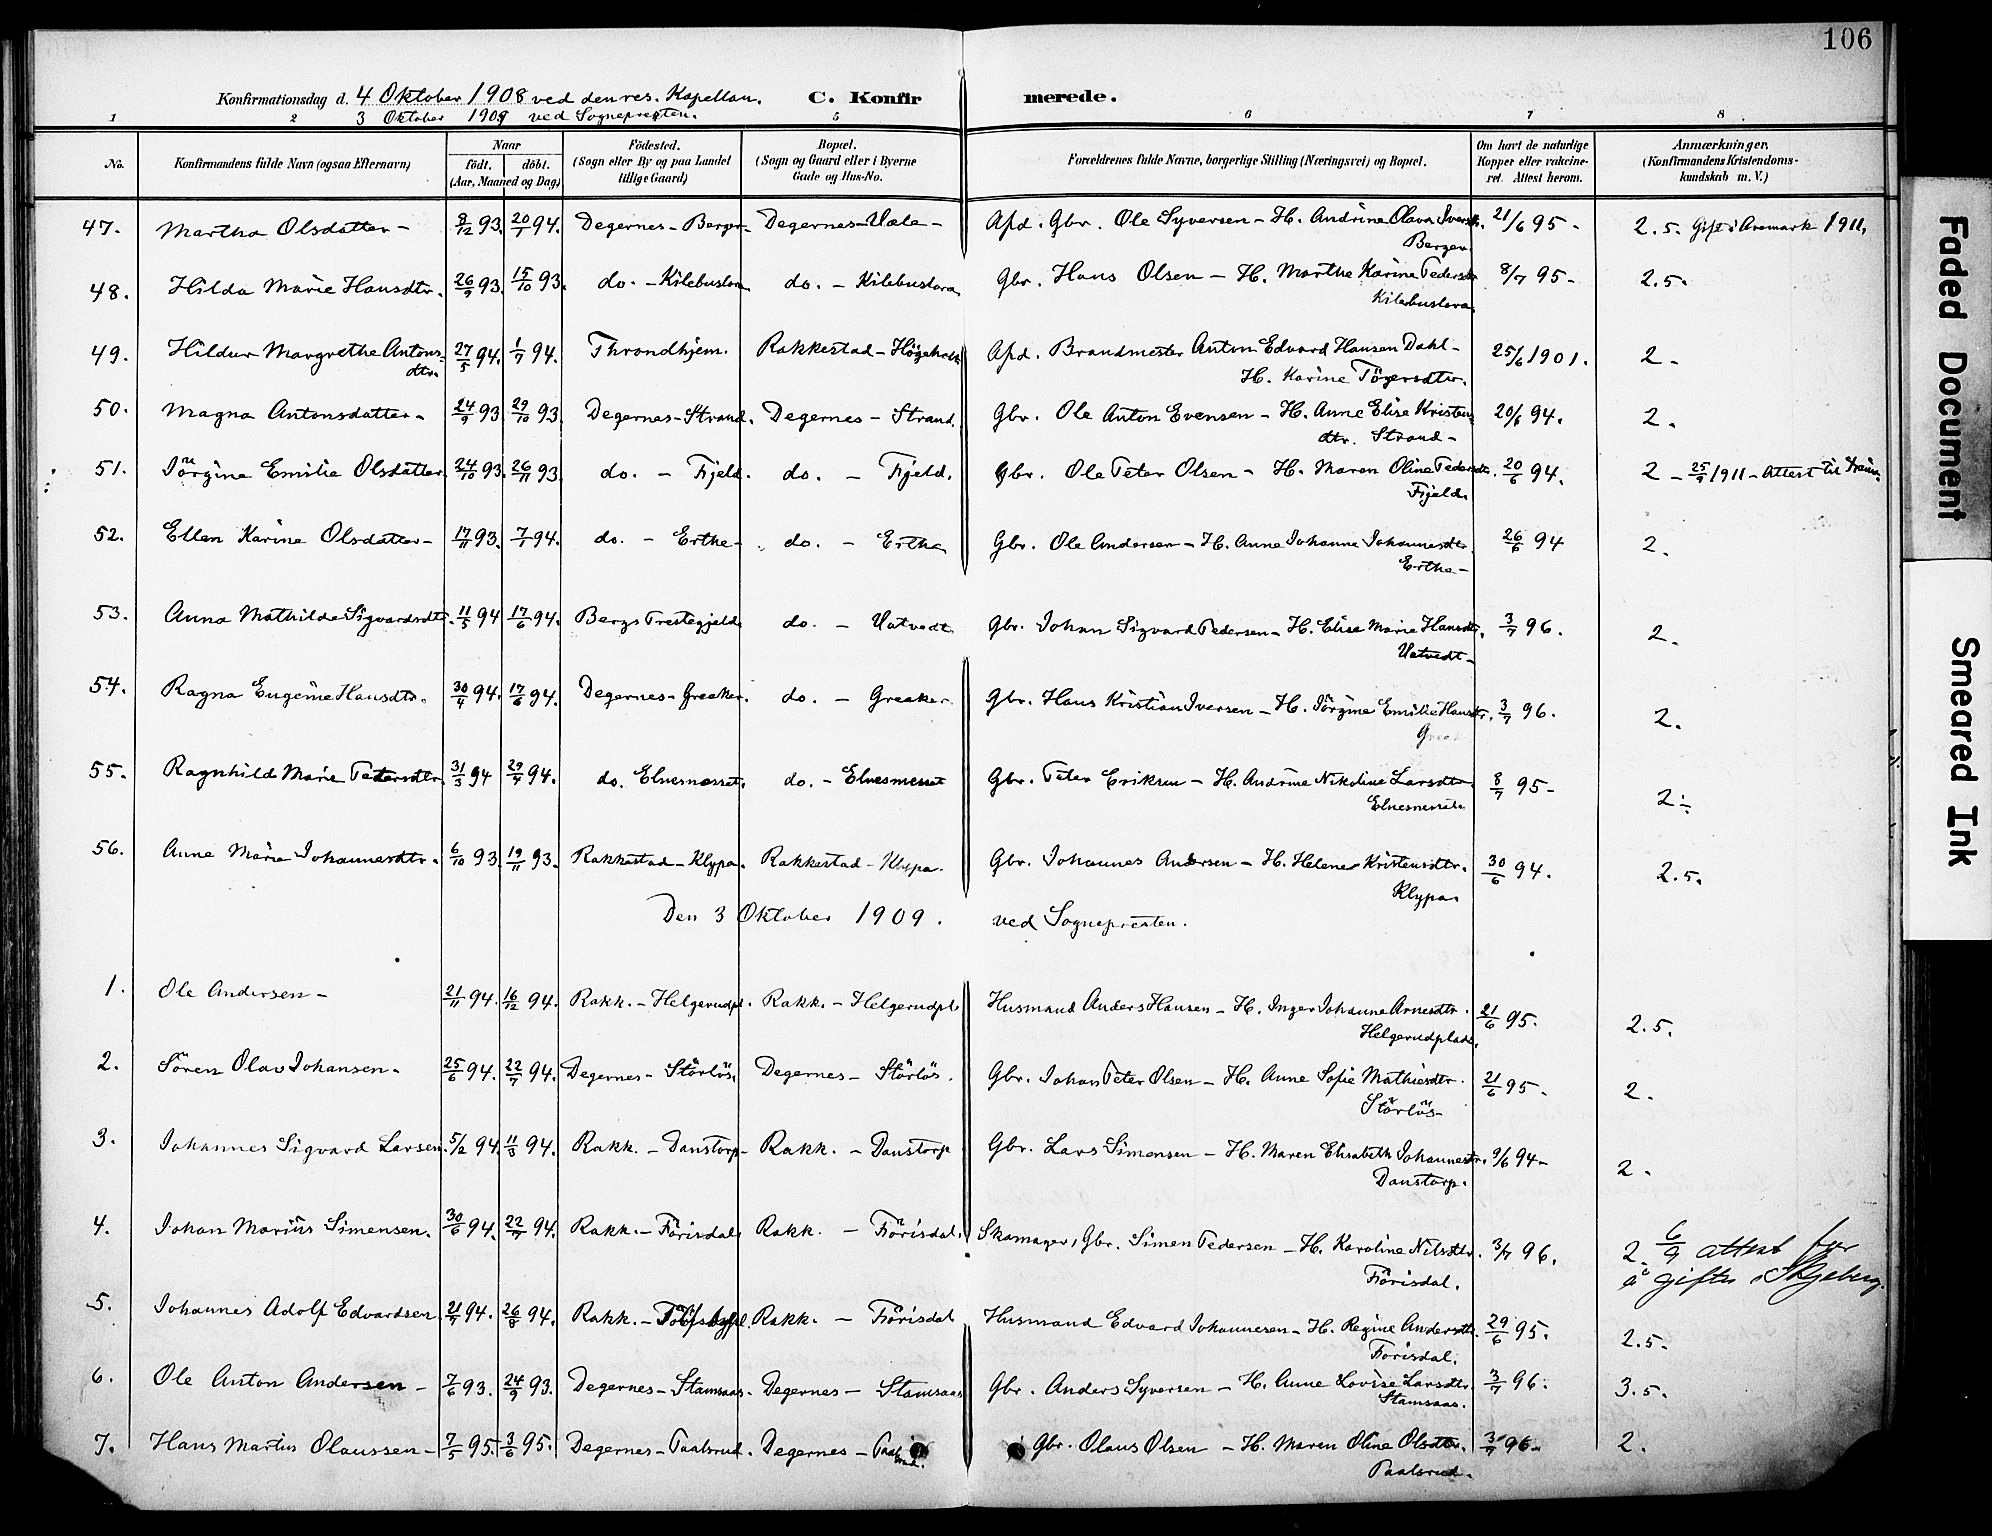 106
Konfirmationsdag d. 4 Oktober 1908 ved den res. Kapellan. C. Konfirmerede.
3 Oktober 1909 ved Sognepresten.
1 2 5 6 7 8
No. Konfirmandens fulde Navn (ogsaa Efternavn) Naar födt. döbt. (Aar, Maaned og Dag) Födested. (Sogn eller By og paa Landet tillige Gaard) Bopæl. (Sogn og Gaard eller i Byerne Gade og Hus-No. Forældrenes fulde Navne, borgerlige Stilling (Næringsvei) og Bopæl. Om havt de naturlige Kopper eller vakcineret. Attest herom. Anmærkninger, (Konfirmandens Kristendomskundskab m. V.)
47. Martha Olsdatter - 8/12 93. 20/1 94. Degernes - Berger - Degernes - Væle - Afd. Gbr. Ole Syversen - H. Andrine Olava Iversdtr. 21/6 95 - 2.5. Gift i Aremark 1911.
Berger
48. Hilda Marie Hansdtr. 26/9 93. 15/10 93. do. - Kilebuslora do. - Kilebuslora Gbr. Hans Olsen - H. Marthe Karine Pedersdtr. 8/7 95 - 2.5.
Kilebuslora
49. Hildur Margrethe Antonsdtr. 27/5 94. 1/7 94. Throndhjem. Rakkestad - Afd. Brandmester Anton Edvard Hansen Dahl - 25/6 1901. 2 -
H. Karine Tögersdtr.
50. Magna Antonsdatter - 24/9 93 29/10 93. Degernes - Strand. Degernes - Strand. Gbr. Ole Anton Evensen - H. Anne Elise Kristendtr. 20/6 94. 2.
Strand -
51. Jörgine Emilie Olsdatter 24/10 93. 26/11 93. do. - Fjeld. do. - Fjeld. Gbr. Ole Peter Olsen - H. Maren Oline Pedersdtr. 20/6 94. 2 - 25/9 1911 - Attest til
Fjeld.
52. Ellen Karine Olsdatter - 17/11 93. 7/1 94. do. - Erthe - do. - Erthe Gbr. Ole Andersen - H. Anne Johanne Johannesdtr. 26/6 94 2.
Erthe -
53. Anna Mathilde Sigvardsdtr. 11/5 94 17/6 94. Bergs Prestegjeld do. - Vatvedt Gbr. Johan Sigvard Pedersen - H. Elise Marie Hansdtr. 3/7 96. 2.
Vatvedt -
54. Ragna Eugenie Hansdtr. 30/4 94. 17/6 94. Degernes - Greaker. do. - Greaker. Gbr. Hans Kristian Iversen - H. Jörgine Emilie Hansdtr. 3/7 96. 2.
Greak
55. Ragnhild Marie Petersdtr. 31/3 94 29/4 94. do. Elvesnesset. do. - Elvesnesset Gbr. Peter Eriksen - H. Andrine Nikoline Larsdtr. 8/7 95 - 2 -
Elvesnesset
56. Anne Marie Johannesdtr. 6/10 93. 19/11 93. Rakkestad - Klypa. Rakkestad - Klypa. Gbr. Johannes Andersen - H. Helene Kristensdtr. 30/6 94. 2.5.
Klypa
Den 3 Oktober 1909. ved Sognepresten.
1. Ole Andersen - 21/11 94. 16/12 94. Rakk. - Helgerudpl. Rakk. - Helgerudpl. Husmand Anders Hansen - H. Inger Johanne Arnesdtr. 21/6 95. 2.5.
Helgerudplads.
2. Sören Olav Johansen. 25/6 94. 22/7 94. Degernes - Störlös. Degernes - Störlös. Gbr. Johan Peter Olsen - H. Anne Sofie Mathiesdtr. 21/6 95 - 2.
Störlös -
3. Johannes Sigvard Larsen. 5/2 94. 11/3 94. Rakk. - Danstorp - Rakk. - Danstorp Gbr. Lars Simensen - H. Maren Elisabeth Johannesdtr. 9/6 94 - 2.
Danstorp.
4. Johan Marius Simensen. 30/6 94. 22/7 94. Rakk. - Förisdal. Rakk. - Förisdal. Skomager, Gbr. Simen Pedersen - H. Karoline Nilsdtr. 3/7 96. 2. 6/9 attest for
Förisdal. å giftes i Skjeberg.
5. Johannes Adolf Edvardsen. 21/7 94. 26/8 94. Rakk. - Rakk. - Förisdal Husmand Edvard Johannesen - H. Regine Andersdtr. 29/6 95. 2.5.
Förisdal.
6. Ole Anton Andersen - 7/6 93. 24/9 93. Degernes - Stamsaas. Degernes - Stamsaas Gbr. Anders Syversen - H. Anne Lovise Larsdtr. 3/7 96. 3.5.
Stamsaas.
7. Hans Marius Olaussen - 7/5 95. 3/6 95. Degernes - Paalsrud. Degernes - Paalsrud. Gbr. Olaus Olsen - H. Maren Oline Olsdtr. 3/7 96. 2.
Paalsrud.
Faded Document
Smeared Ink